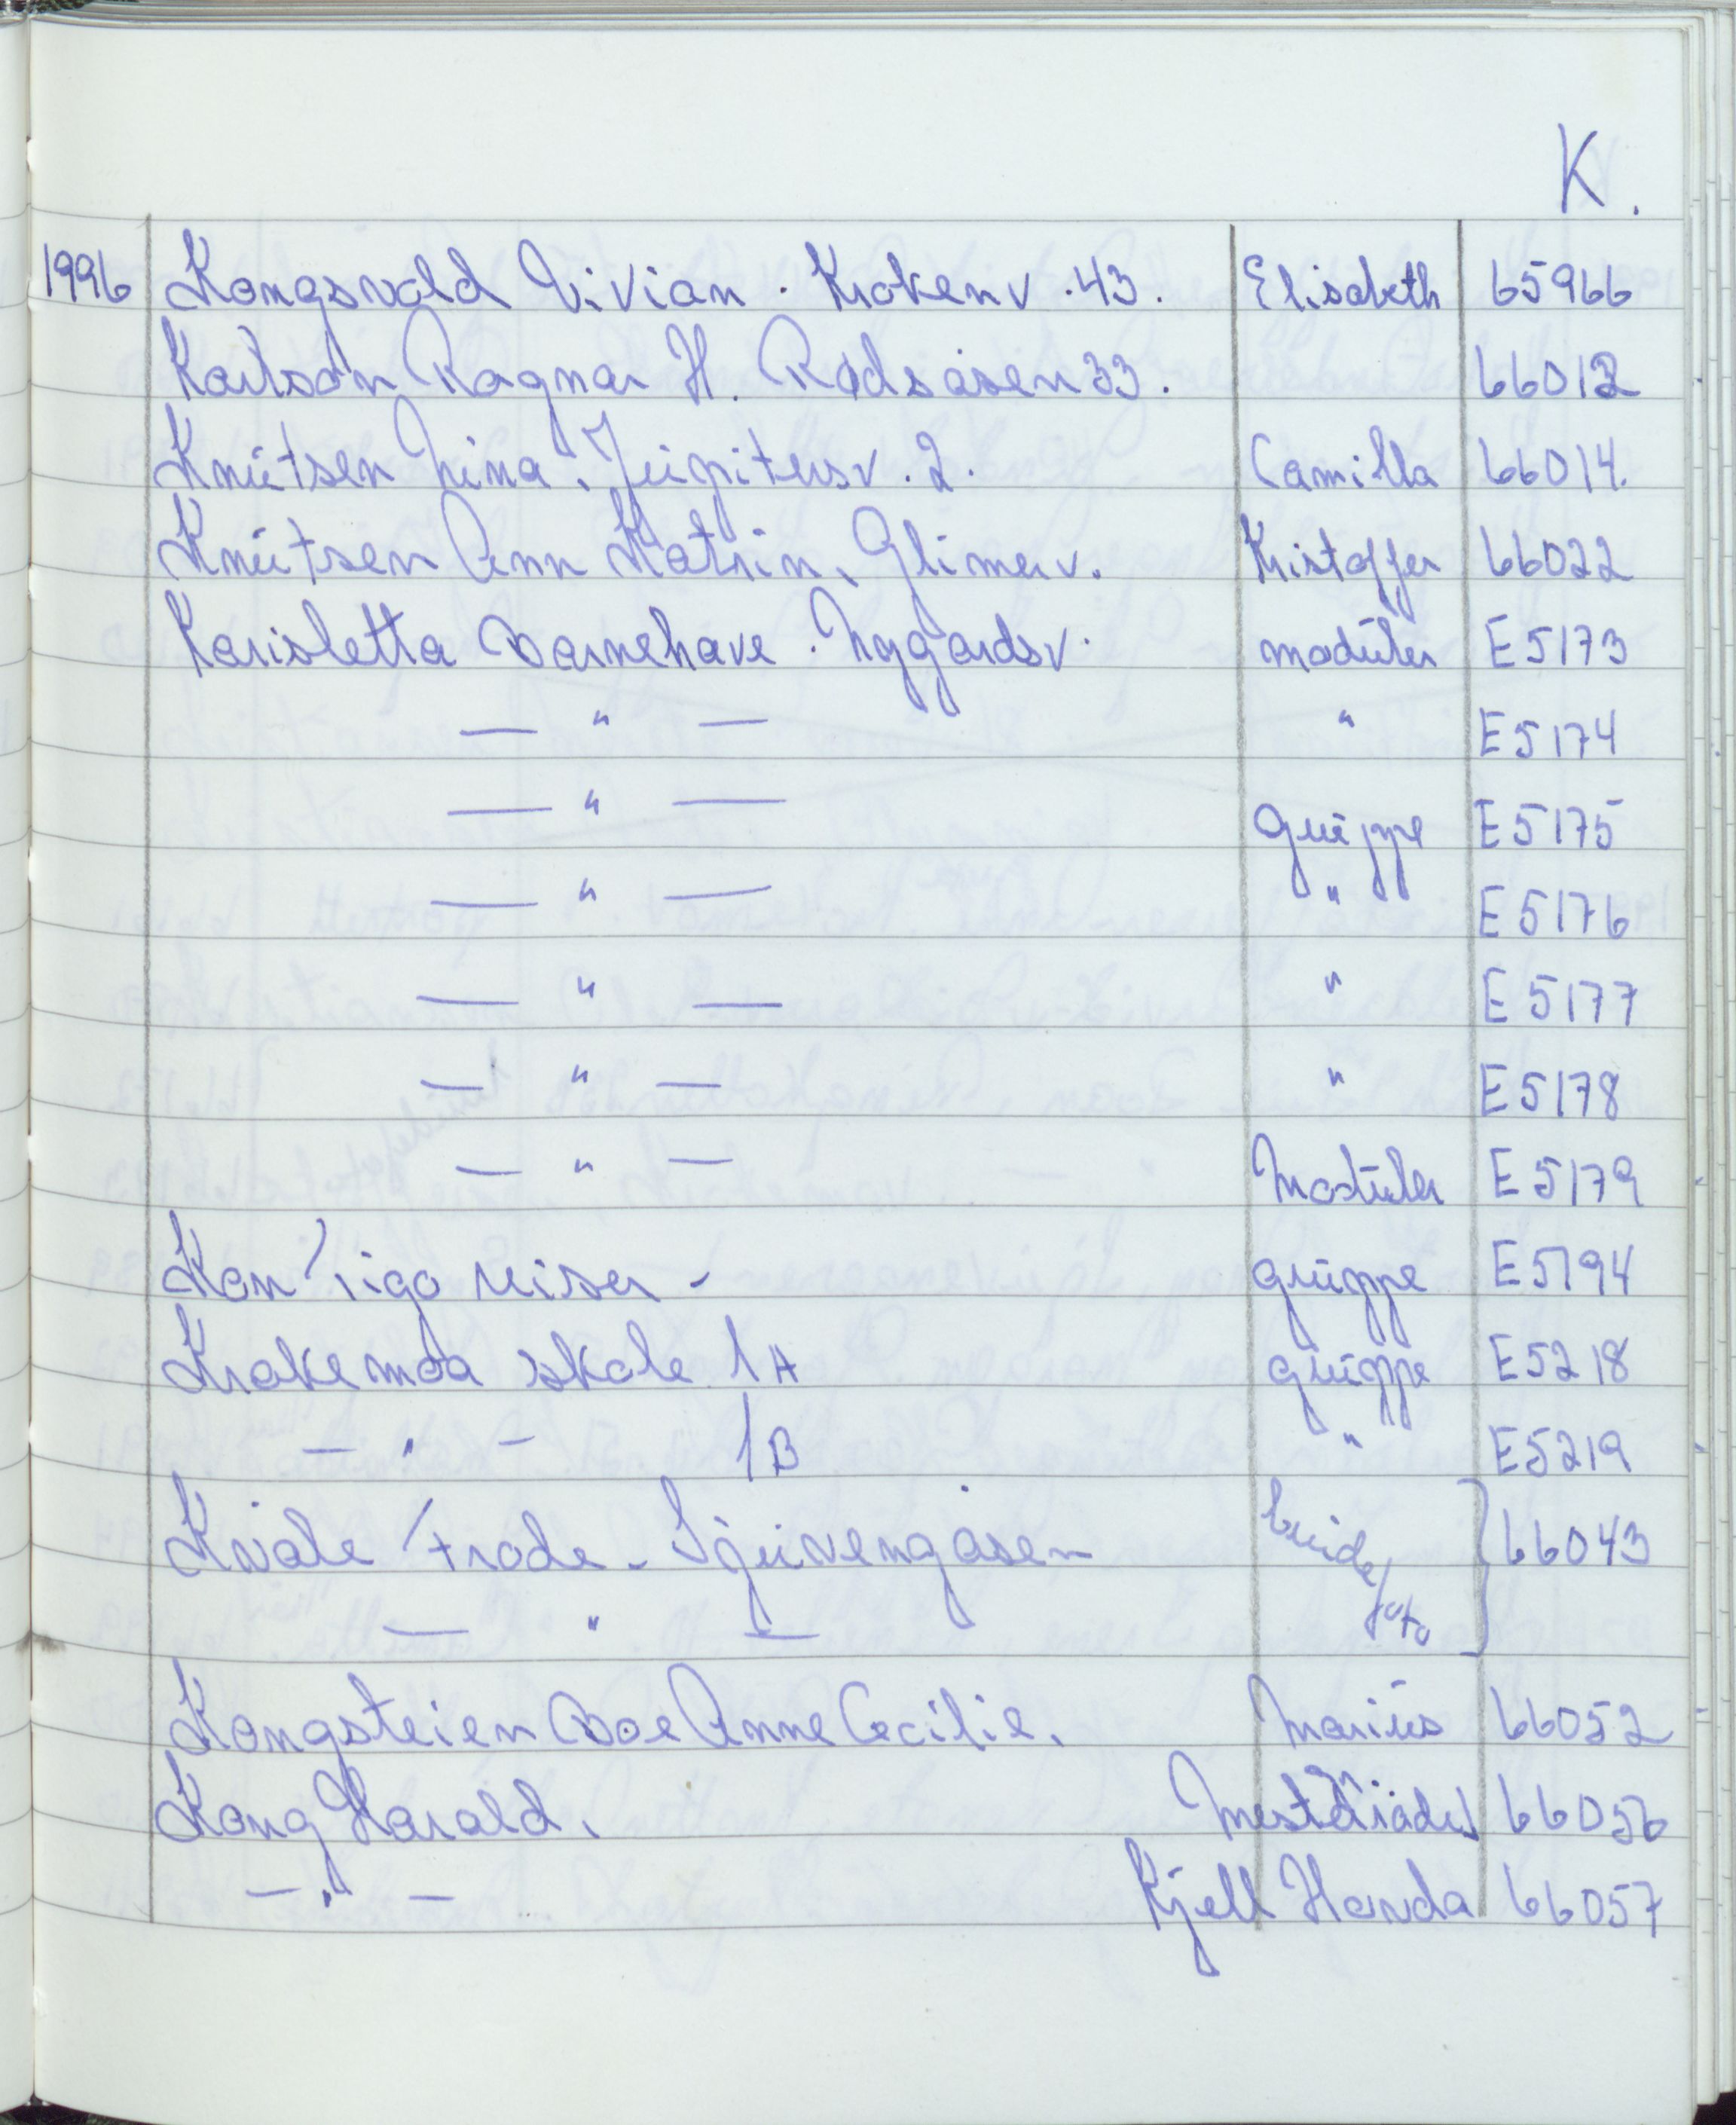 K.
1996 Kongsvold Vivian. Krokenv. 43. Elisabeth 65966
Karlson Ragnar H. Rødsåsen 33. 66012
Knutsen Nina. Jupitersv. 2. Camilla 66014.
Knutsen Ann Katrin. Glimerv. Kristoffer 66022
Karisletta Barnehave. Nygårdsv. moduler E5173
— " — " E5174
— " — Gruppe E5175
— " — " E5176
— " — " E5177
— " — " E5178
— " — Moduler E5179
gruppe E5194
Krokemoa skole 1A gruppe E5218
— " — 1B " E5219
Kvale Frode - brude 66043
— " — foto
Kongsteien Boe Anne Cecilie. Marius 66052
Kong Harald. 66056
— " — Kjell Handa 66057